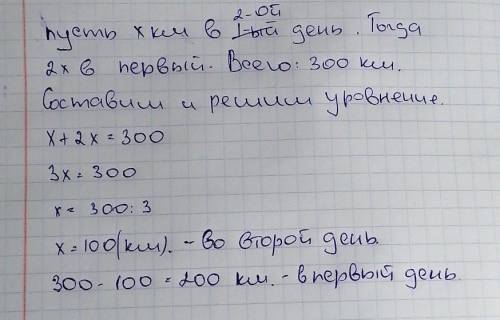 пусть х км в 2-ой день. Тогда
2х в первый. Всего: 300 км.
Составим и решим уровнение.
х + 2х = 300
3х = 300
х = 300 : 3
х = 100(км). - во второй день.
300 - 100 = 200 км. - в первый день.